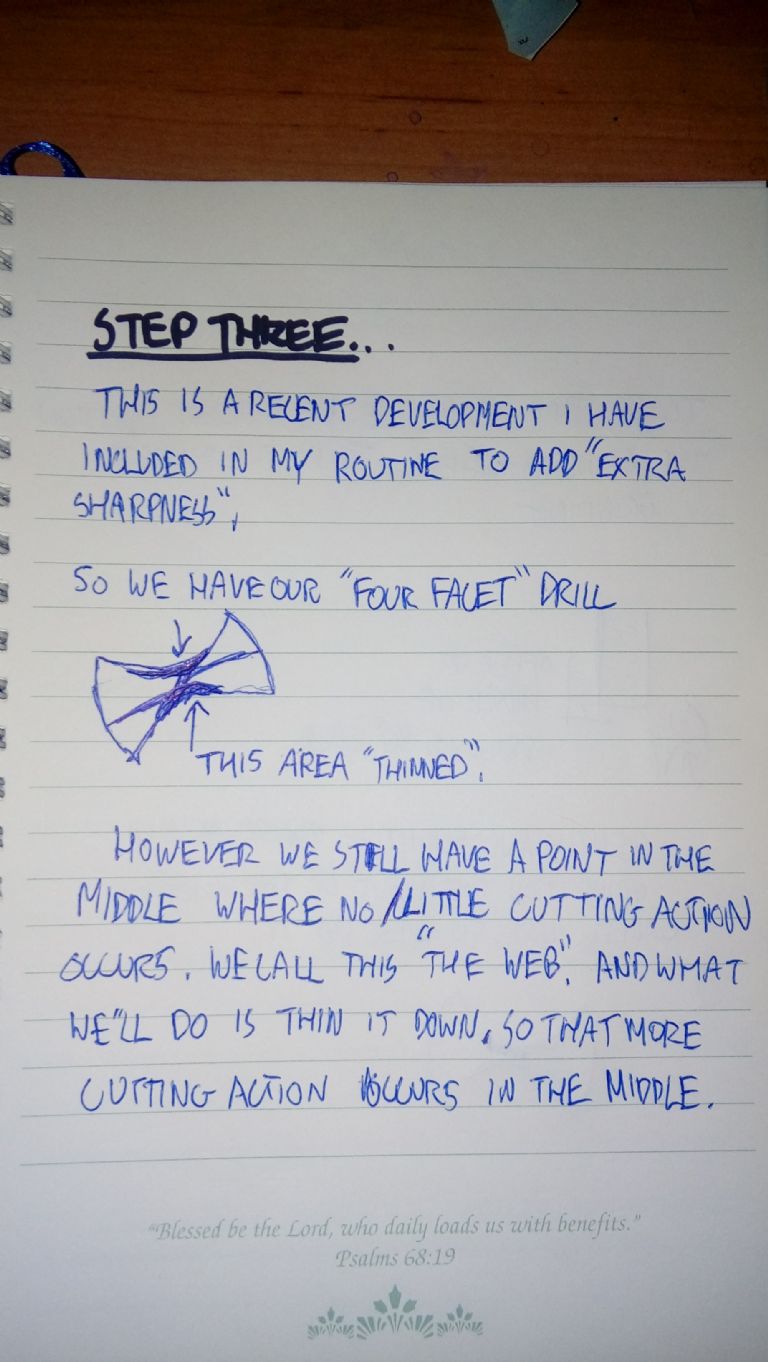 STEP THREE...
THIS IS A RECENT DEVELOPMENT I HAVE
INCLUDED IN MY ROUTINE TO ADD "EXTRA
SHARPNESS",
SO WE HAVE OUR "FOUR FACET" DRILL
THIS AREA "THINNED".
HOWEVER WE STILL HAVE A POINT IN THE
MIDDLE WHERE NO/LITTLE CUTTING ACTION
OCCURS. WE CALL THIS "THE WEB". AND WHAT
WE'LL DO IS THIN IT DOWN, SO THAT MORE
CUTTING ACTION OCCURS IN THE MIDDLE.
"Blessed be the Lord, who daily loads us with benefits."
Psalms 68:19